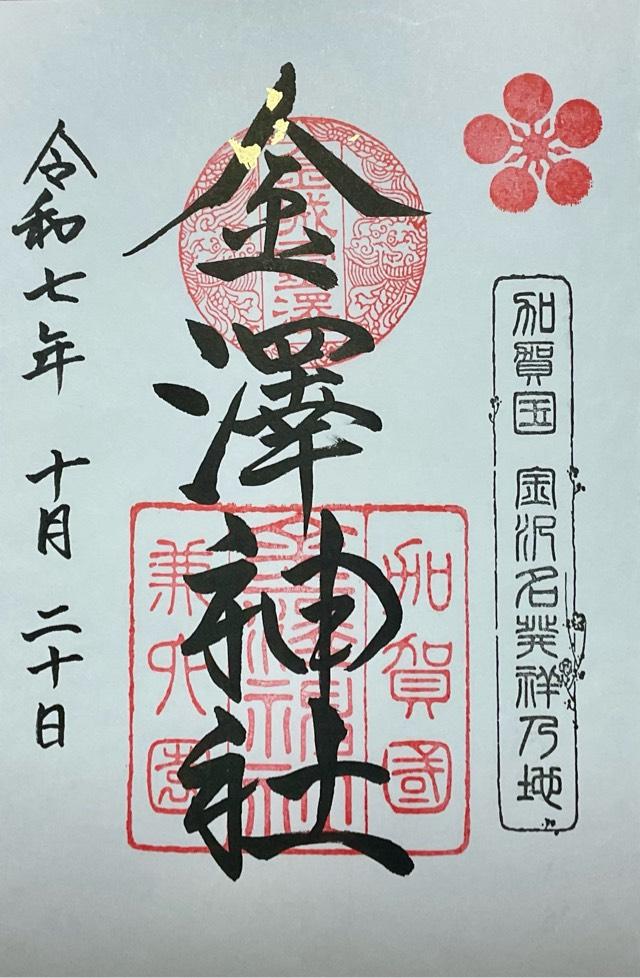 加賀国 金沢名発祥乃地
金澤神社
加賀國
金澤神社
兼六園
令和七年 十月 二十日